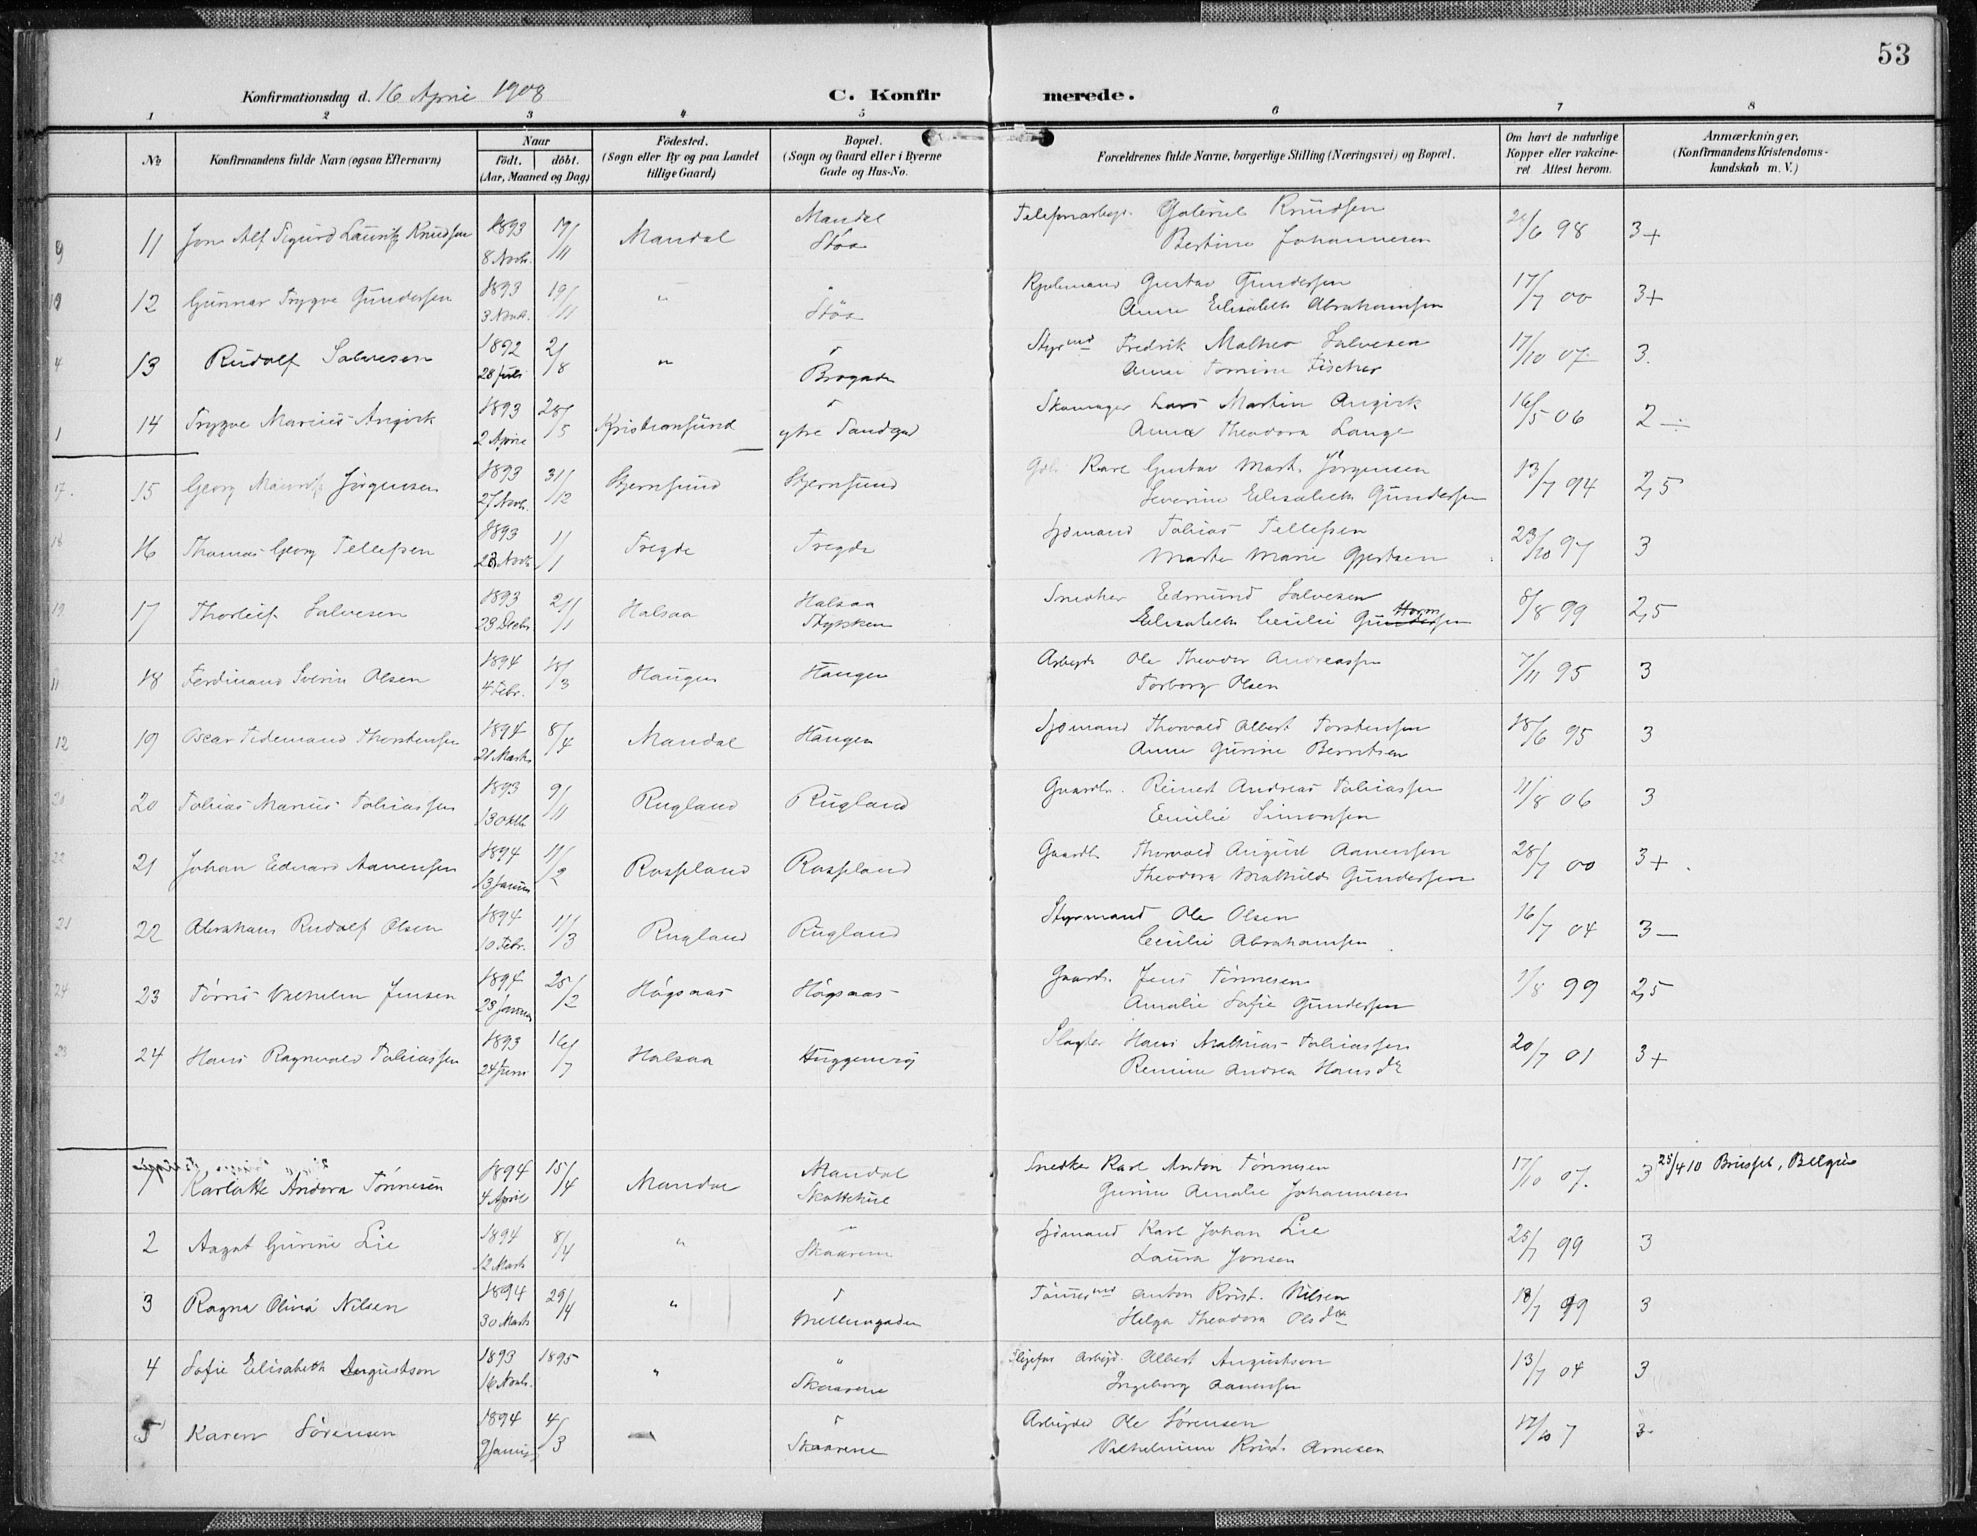 53
Konfirmationsdag d. 16 April 1908
C. Konfirmerede.
1 2 3 4 5 6 7 8
No
Konfirmandens fulde Navn (ogsaa Efternavn)
Naar
födt. döbt.
(Aar, Maaned og Dag)
Födested.
(Sogn eller By og paa Landet
tillige Gaard)
Bopæl.
(Sogn og Gaard eller i Byerne
Gade og Hus-No.
Forældrenes fulde Navne, borgerlige Stilling (Næringsvei) og Bopæl.
Om havt de naturlige
Kopper eller vakcine-
ret Attest herom.
Anmærkninger.
(Konfirmandens Kristendoms-
kundskab m. V.)
9 11 Jon Alf Sigurd Lauritz Knudsen 1893 8 Novb. 19/11 Mandal Mandal Støa Telefonarbeid. Gabriel Knudsen
Bertine Johannesen 6 98 3+
12 Gunnar Trygve Gundersen 1893 3 Novb. 19/11 " " Støa Gustav Gundersen
Anne Elisabeth Abrahamsen 17/7 00 3+
4 13 Rudolf Salvesen 1892 28 Juli 2/8 " " Brogaden Styrmd Fredrik Salvesen
Anne Tomine Fischer 17/10 07 3.
1 14 Trygve Marius 1893 2 April 28/5 Kristiansund " ytre Skomager Lars Martin
Anna Theodora Lange 16/5 06 2 ÷
17. 15 Georg Jørgensen 1893 27 Novb. 31/12 Skjernsund Skjernsund Karl Gustav Mart. Jørgensen
Severine Elisabeth Gundersen 13/7 94 2,5
18 16 Thomas Georg Tellefsen 1893 23 Novb. 1/1 Tregde Tregde Sjømand Tobias Tellefsen
Marie Gjertsen 23/10 97 3
19 17 Thorleif Salvesen 1893 23 Decb. 21/1 Halsaa Halsaa Stykken Snedker Edmund Salvesen
Elisabeth Cecilie Gundersen 8/8 99 2,5
11 18 Ferdinand Severin Olsen 1894 4 Febr. 18/3 Haugen Haugen Arbeid. Ole Theodor Andreassen
Torborg Olsen 7/11 95 3
12 19 Oscar Tidemand Thorstensen 1894 21 Marts 8/4 Mandal Haugen Sjømand Thorvald Albert Torstensen
Anne Gurine Berntsen 18/6 95 3
20 20 Tobias Marius Tobiassen 1893 13 Oktb. 9/11 Rugland Rugland Gaardbr. Reinert Andreas Tobiassen
Emilie Simonsen 11/8 06 3
22 21 Johan Edvard Aanensen 1894 13 Januar 11/2 Rosseland Rossland Gaardb. Thorvald August Aanensen
Theodora Mathilde Gundersen 28/7 00 3+
21 22 Abraham Rudolf Olsen 1894 10 Febr. 11/3 Rugland Rugland Styrmand Ole Olsen
Cecilie Abrahamsen 16/7 04 3 —
24 23 Tørris Vilhelm Jensen 1894 28 Januar 25/2 Høgsnas Høgsnas Gaardb. Jens Tønnesen
Amalie Sofie Gundersen 1/8 99 2,5
23 24 Hans Ragnvald Tobiassen 1893 24 Juni 16/7 Halsaa Slagter Hans Mathias Tobiassen
Andrea Hansdtr 20/7 01 3+
1 Karlotte Andora Tønnesen 1894 4 April 15/4 Mandal Mandal Skottehue Snedker Karl Anton Tønnesen
Gurine Amalie Johannesen 17/10 07. 3 25/4 10 Brüssel, Belgien
2 Aagot Gurine Lie 1894 12 Marts 8/4 " " Skaarene Sjømand Karl Johan Lie
Laura Jonsen 25/7 99 3
3 Ragna Olivia Nilsen 1894 30 Marts 29/4 " " Mellemgaden Anton Krist. Nilsen
Helga Theodora Olsdtr 18/7 99 3
4 Sofie Elisabeth Augustson 1893 16 Novb. 1895 " " Skaarene Arbeid. Albert Augustson
Ingeborg Aanensen 13/7 04 3
5 Karen Sørensen 1894 9 Januar 4/3 — " Skaarene Arbeider Ole Sørensen
Vilhelmine Krist. Arnesen 17/10 7 3